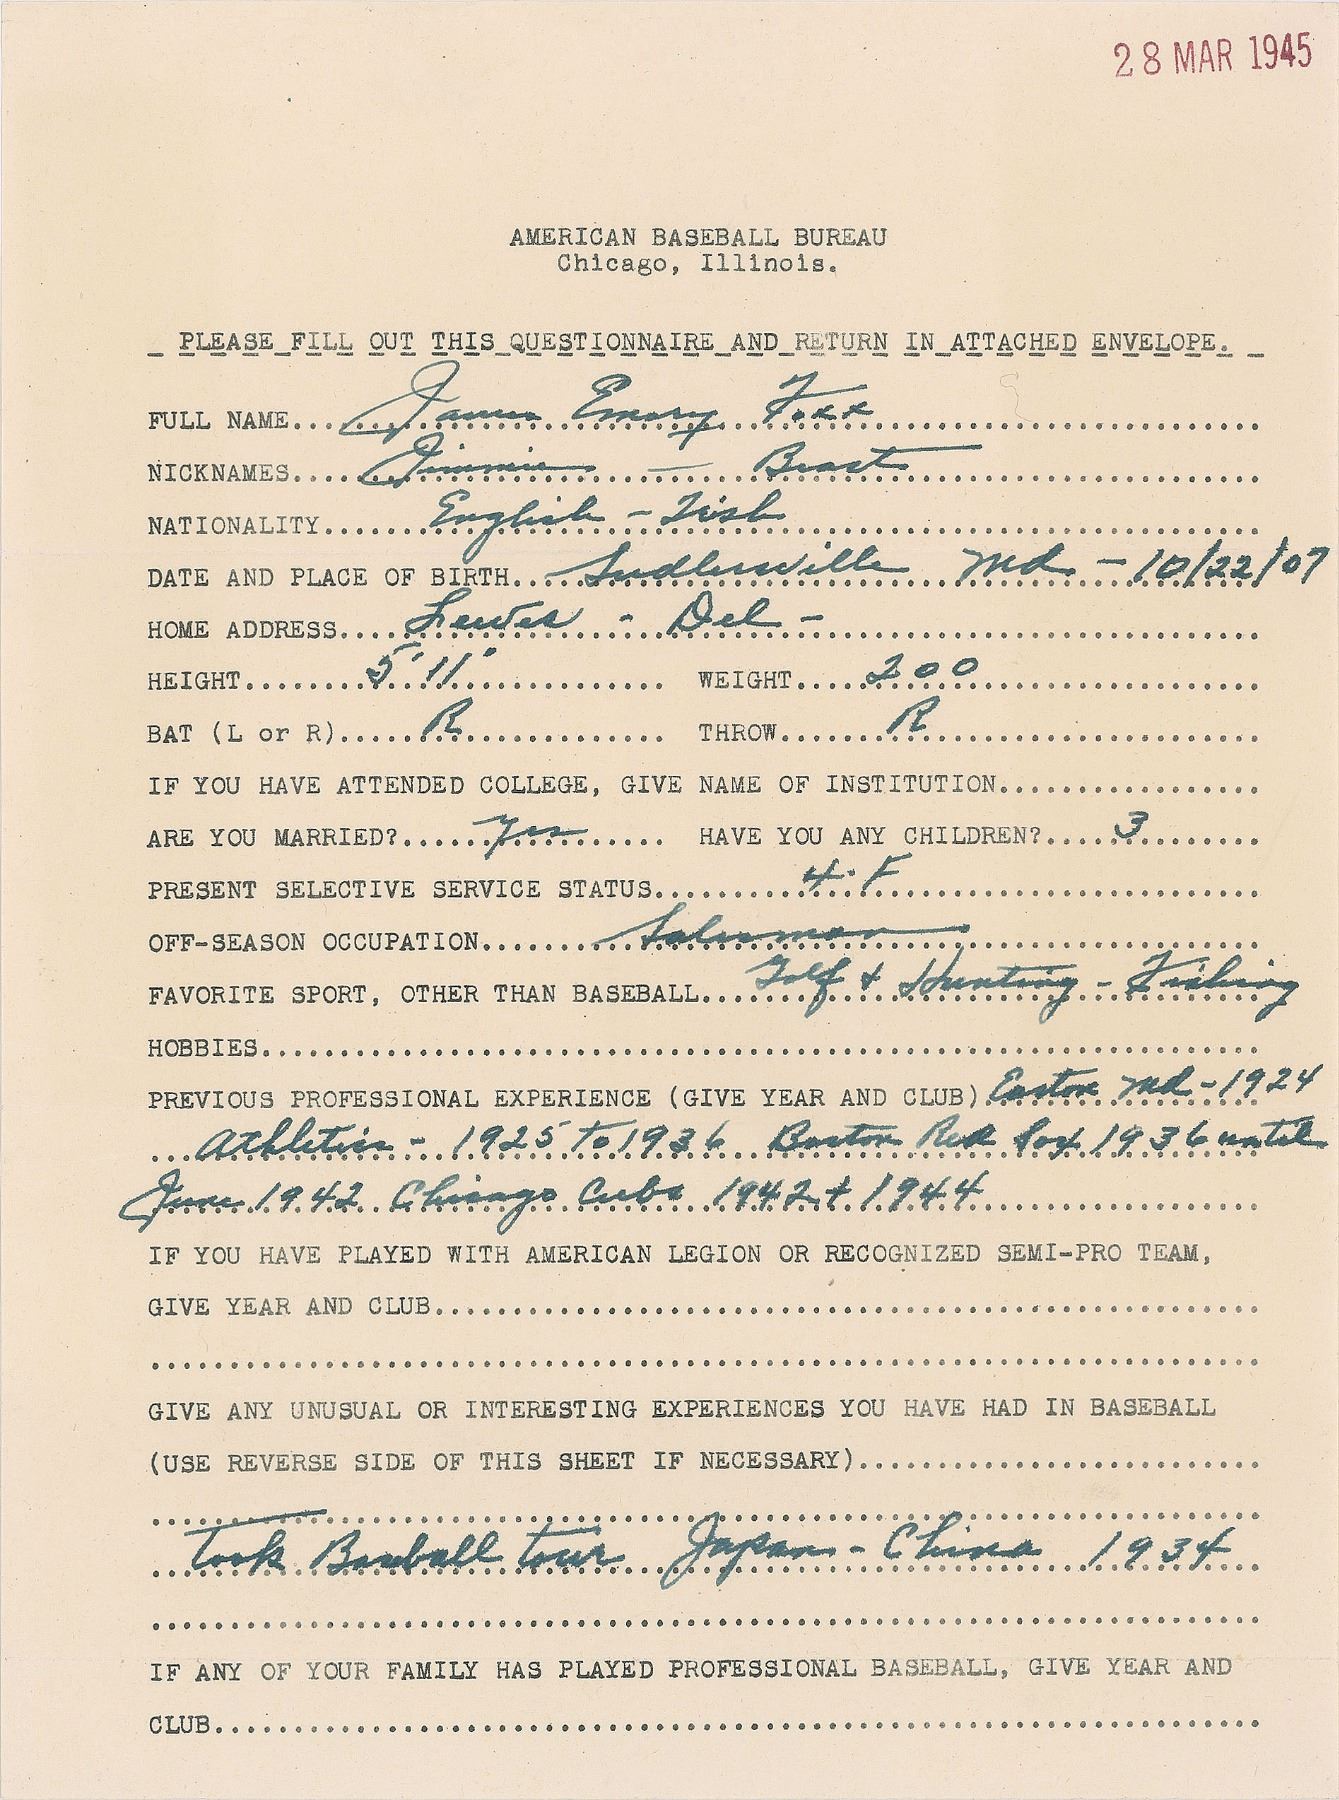 28 MAR 1945
AMERICAN BASEBALL BUREAU
Chicago, Illinois.
PLEASE FILL OUT THIS QUESTIONNAIRE AND RETURN IN ATTACHED ENVELOPE.
FULL NAME... James Emory Foxx
NICKNAMES.... Jimmie - Beast
NATIONALITY....... English - Irish
DATE AND PLACE OF BIRTH... Sudlersville Md - 10/22/07
HOME ADDRESS.... Lewes - Del -
HEIGHT........ 5' 11" WEIGHT..... 200
BAT (L or R)..... R THROW....... R
IF YOU HAVE ATTENDED COLLEGE, GIVE NAME OF INSTITUTION.................
ARE YOU MARRIED?...... Yes HAVE YOU ANY CHILDREN?..... 3
PRESENT SELECTIVE SERVICE STATUS......... 4-F
OFF-SEASON OCCUPATION........ Salesman
FAVORITE SPORT, OTHER THAN BASEBALL.... Golf + Hunting - Fishing
HOBBIES................................................................
PREVIOUS PROFESSIONAL EXPERIENCE (GIVE YEAR AND CLUB) Easton Md - 1924
Athletics - 1925 to 1936 Boston Red Sox 1936 until
June 1942 Chicago Cubs 1942 + 1944
IF YOU HAVE PLAYED WITH AMERICAN LEGION OR RECOGNIZED SEMI-PRO TEAM,
GIVE YEAR AND CLUB.....................................................
GIVE ANY UNUSUAL OR INTERESTING EXPERIENCES YOU HAVE HAD IN BASEBALL
(USE REVERSE SIDE OF THIS SHEET IF NECESSARY)..........................
Took Baseball tour Japan - China 1934
IF ANY OF YOUR FAMILY HAS PLAYED PROFESSIONAL BASEBALL, GIVE YEAR AND
CLUB...................................................................